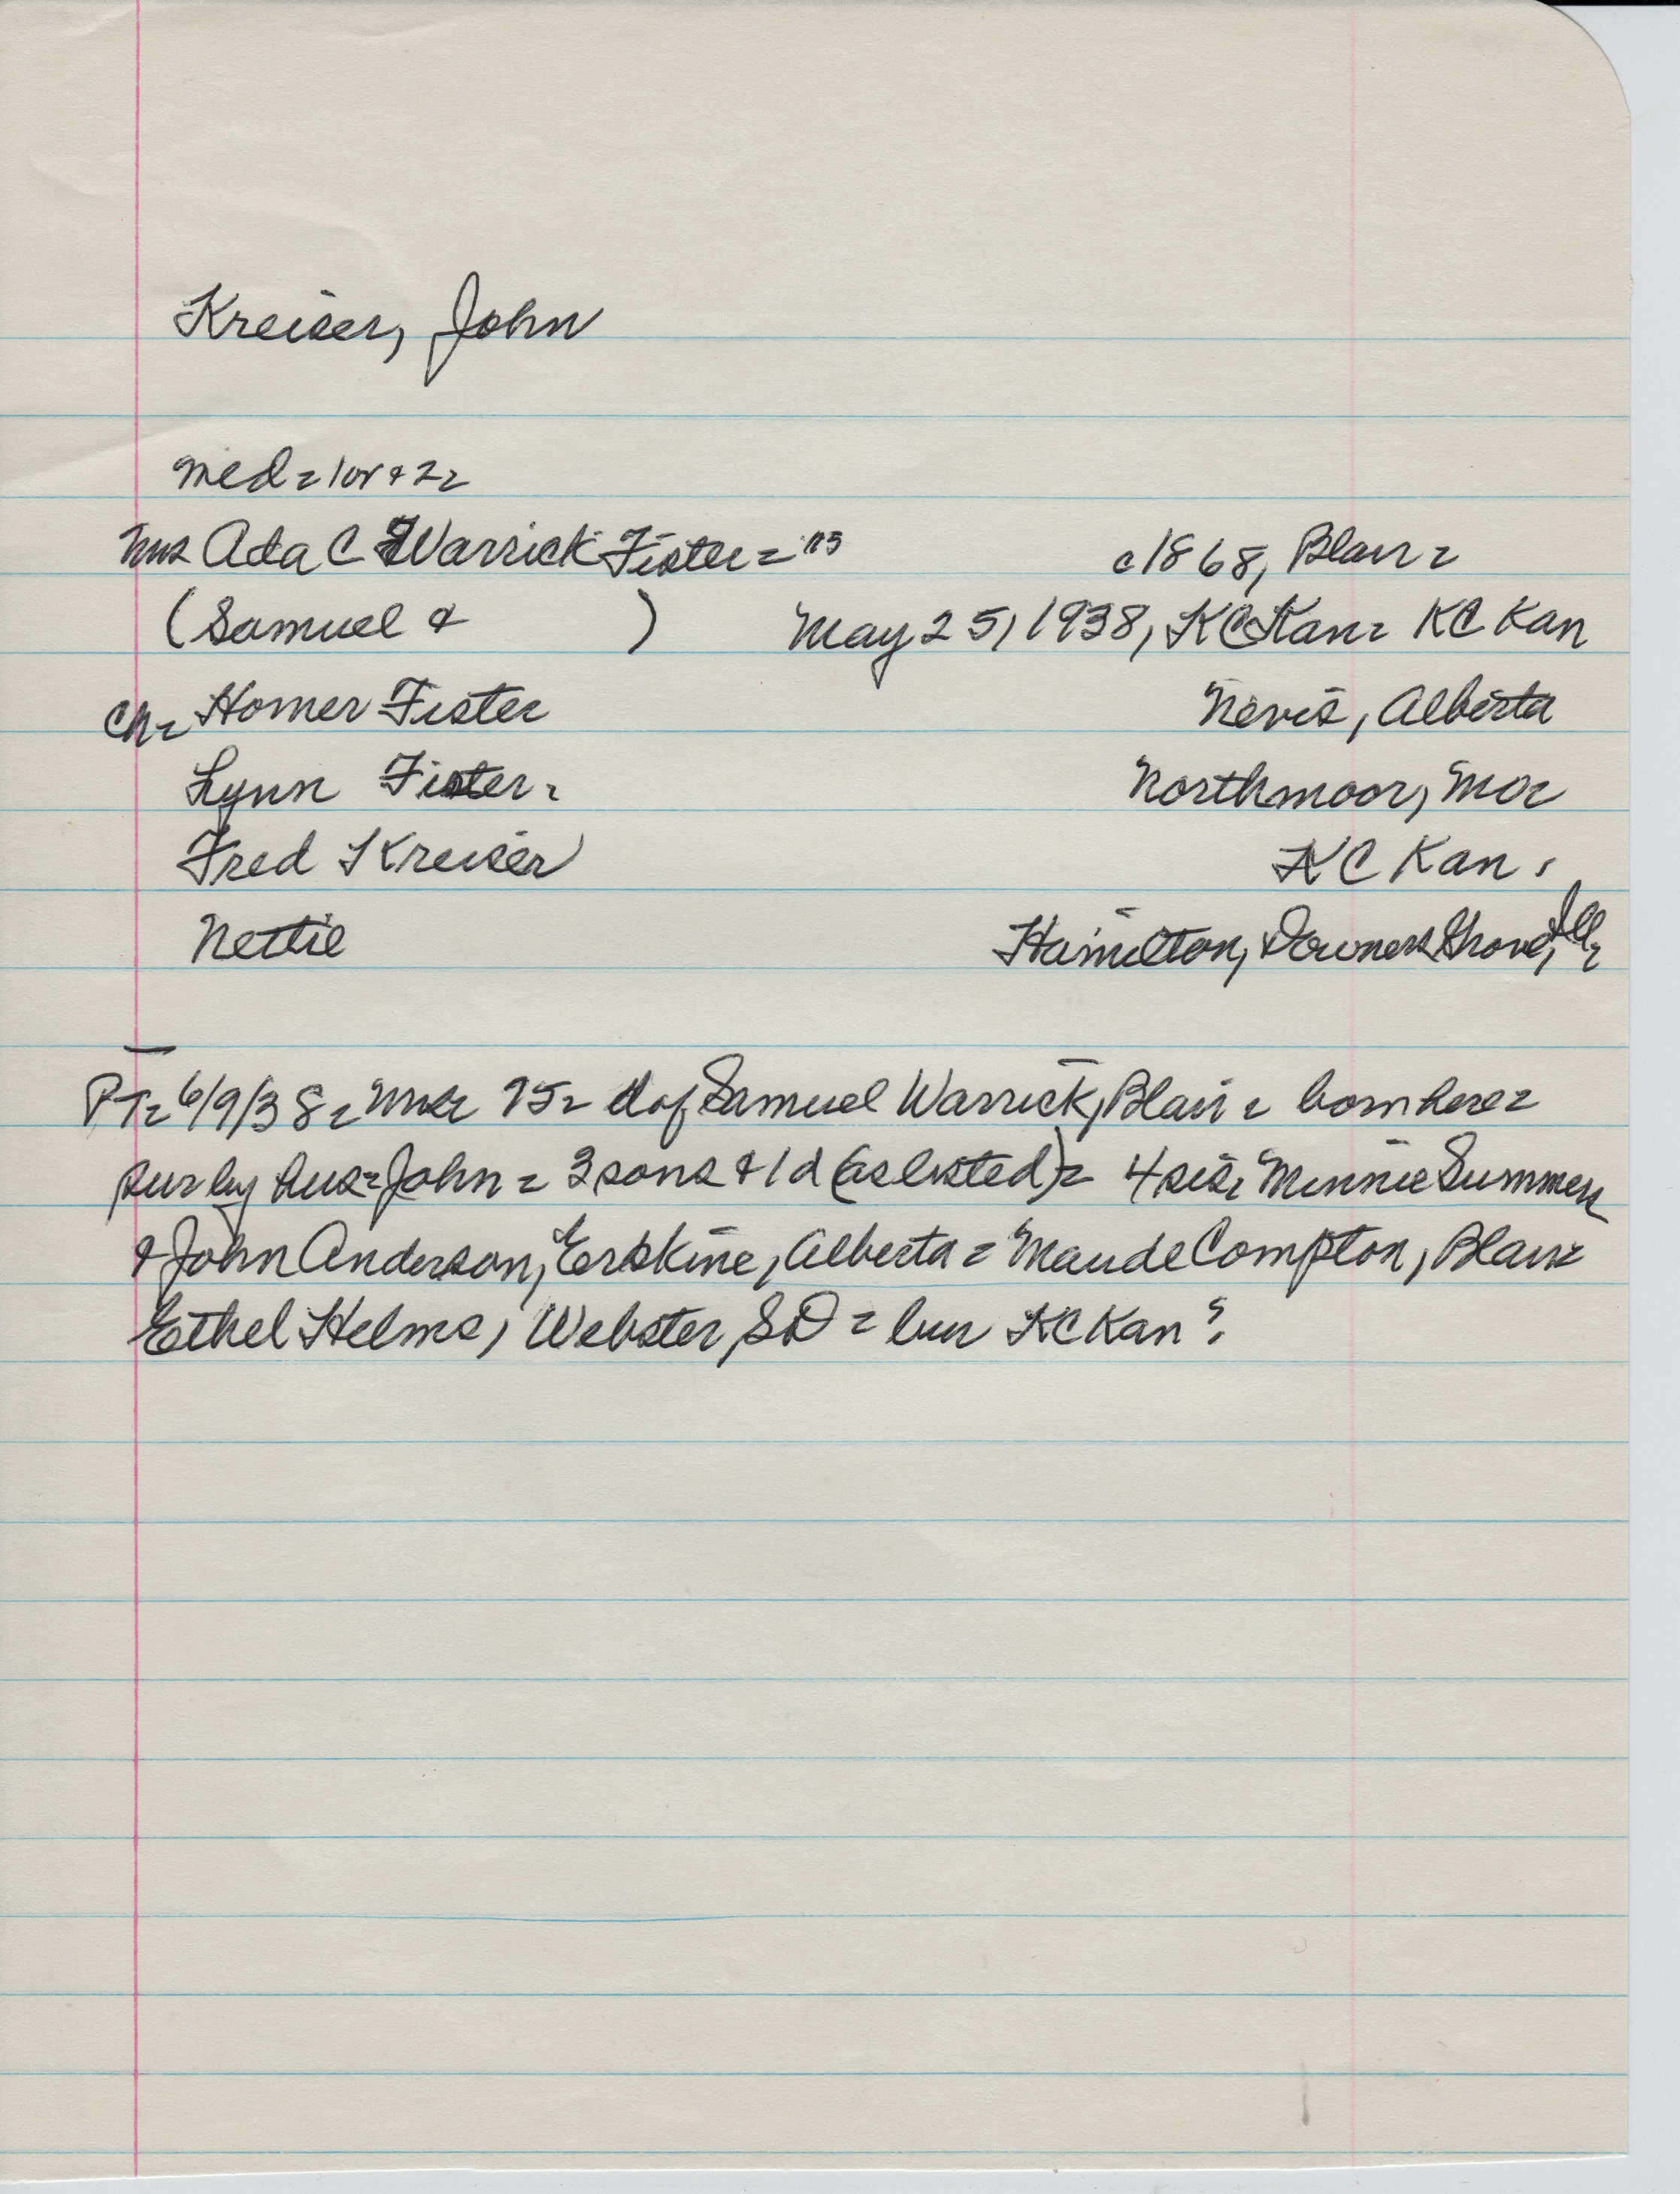 Kreiser, John
med = 1 or + 2 =
Mrs Ada C Warrick Fister = c1868, Blair =
(Samuel & ) May 25, 1938, KC Kan = KC Kan
Ch = Homer Fister Nevis, Alberta
Lynn Fister = Northmoor, Mo =
Fred Kreiser KC Kan.
Nettie Hamilton, Downers Grove, Ill =
PT = 6/9/38 = Mrs 75 = d of Samuel Warrick, Blair = born here =
sur by hus = John = 3 sons & 1 d (as listed) = 4 sis = Minnie Summers
& John Anderson, Erskine, Alberta = Maude Compton, Blair =
Ethel Helms, Webster, SD = bur KC Kan?